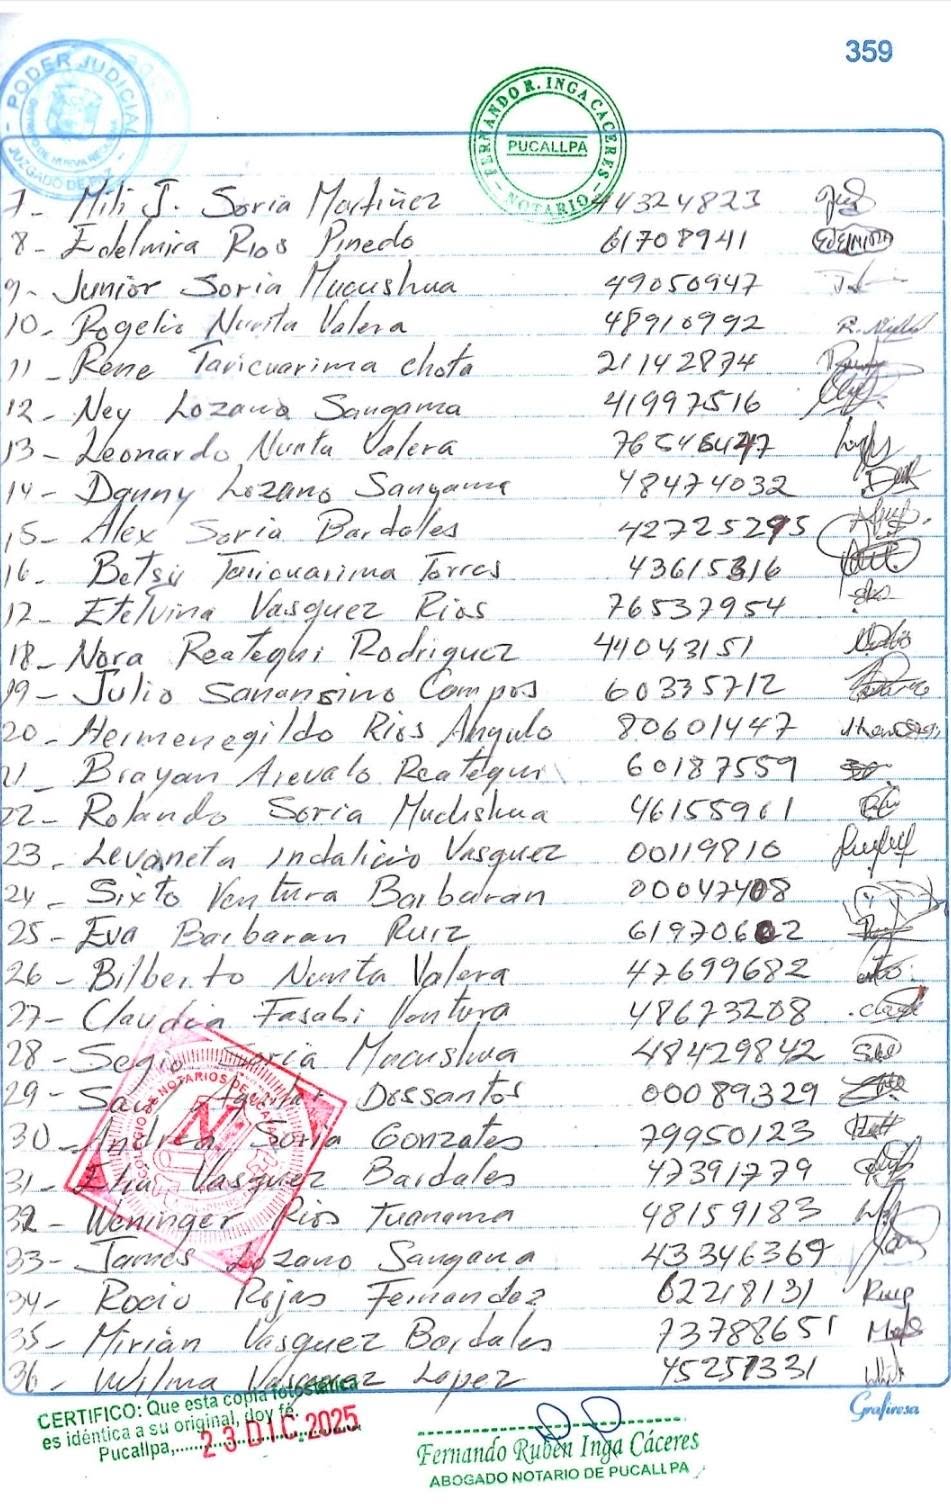 359
PODER JUDICIAL
JUZGADO DE PAZ
FERNANDO R. INGA CACERES
PUCALLPA
- NOTARIO -
7- Mili J. Soria Martiñez 44324823
8- Edelmira Rios Pinedo 61708941
9- Junior Soria Mucushua 49050947
10- Rogelio Nunta Valera 48910992
11- Rene Taricuarima chota 21142874
12- Ney Lozano Sangama 41997516
13- Leonardo Nunta Valera
14- Danny Lozano Sangama 48474032
15- Alex Soria Bardales 42725295
16- Betsy Taricuarima Torres 43615316
17- Etelvina Vasquez Rios 76537954
18- Nora Reategui Rodriguez 44043151
19- Julio Sanansino Campos 60335712
20- Hermenegildo Rios Angulo 80601447
21- Brayan Arevalo Reategui 60187559
22- Rolando Soria Mucushua 46155961
23- Levaneta Indalicio Vasquez 00119810
24- Sixto Ventura Barbaran 00047408
25- Eva Barbaran Ruiz 61970602
26- Bilberto Nunta Valera 47699682
27- Claudia Fasabi Ventura 48673208
28- Segio Soria Mucushua 48429842
29- Saul Aguilar Dossantos 00089329
30- Andrea Soria Gonzales 79950123
31- Elia Vasquez Bardales 47391779
32- Weninger Rios Tuanama 48159183
33- James Lozano Sangama 43346369
34- Rocio Rojas Fernandez 62218131
35- Mirian Vasquez Bardales 73788651
36- Wilma Vasquez Lopez 45257331
COLEGIO DE NOTARIOS DE UCAYALI
Grafiresa
CERTIFICO: Que esta copia fotostática
es idéntica a su original, doy fé.
Pucallpa,..... 23 DIC 2025
Fernando Rubén Inga Cáceres
ABOGADO NOTARIO DE PUCALLPA